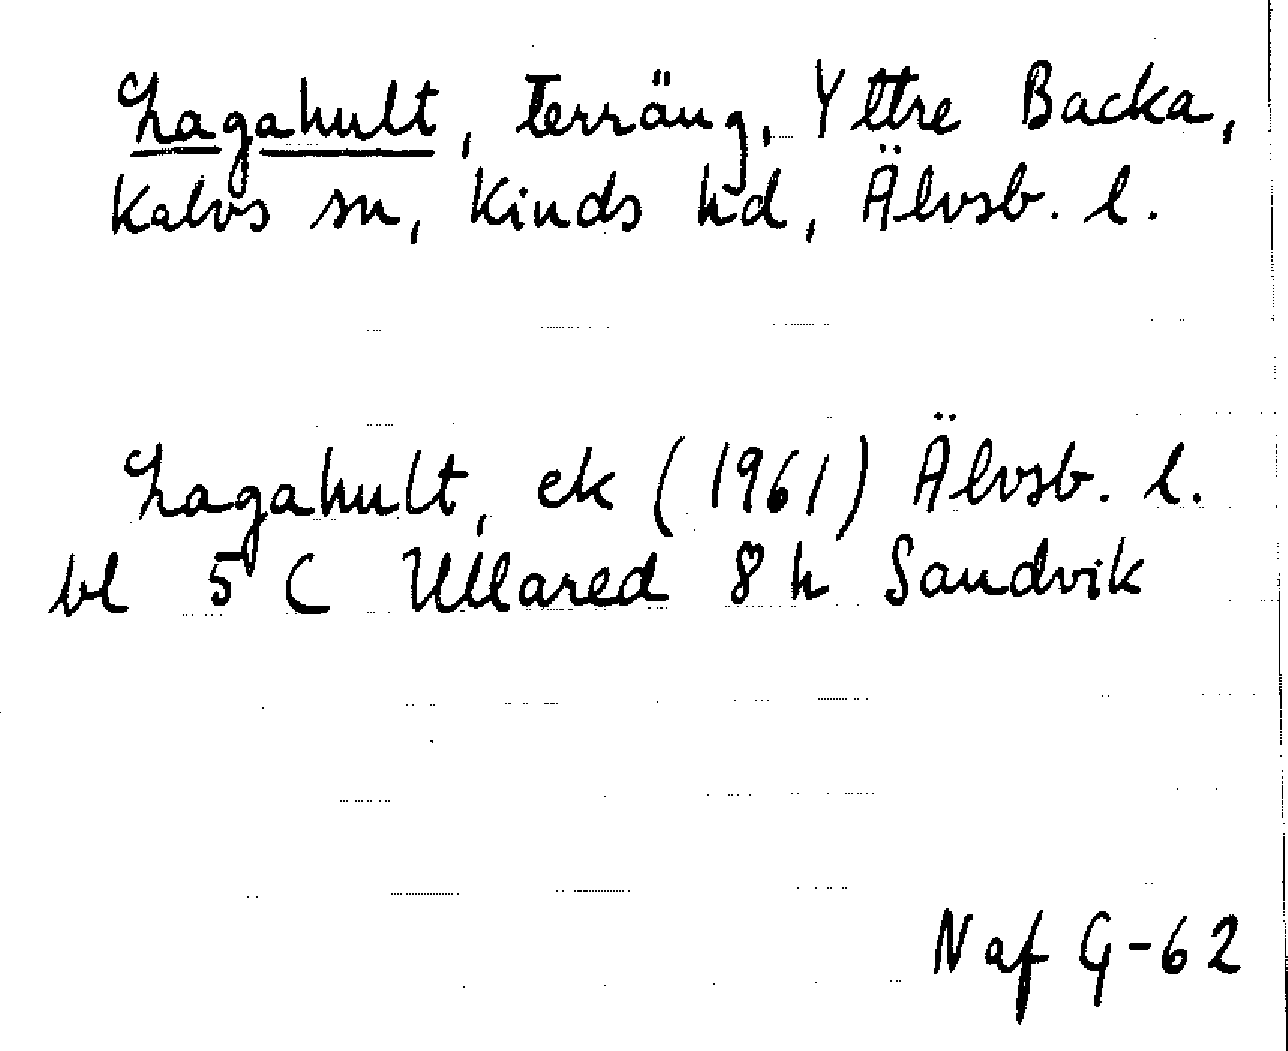 Lagahult, Terräng, Yttre Backa,
Kalvs sn, Kinds hd, Älvsb. l.
Lagahult, ek (1961) Älvsb. l.
bl 5 C Ullared 8 h Sandvik
Naf G-62